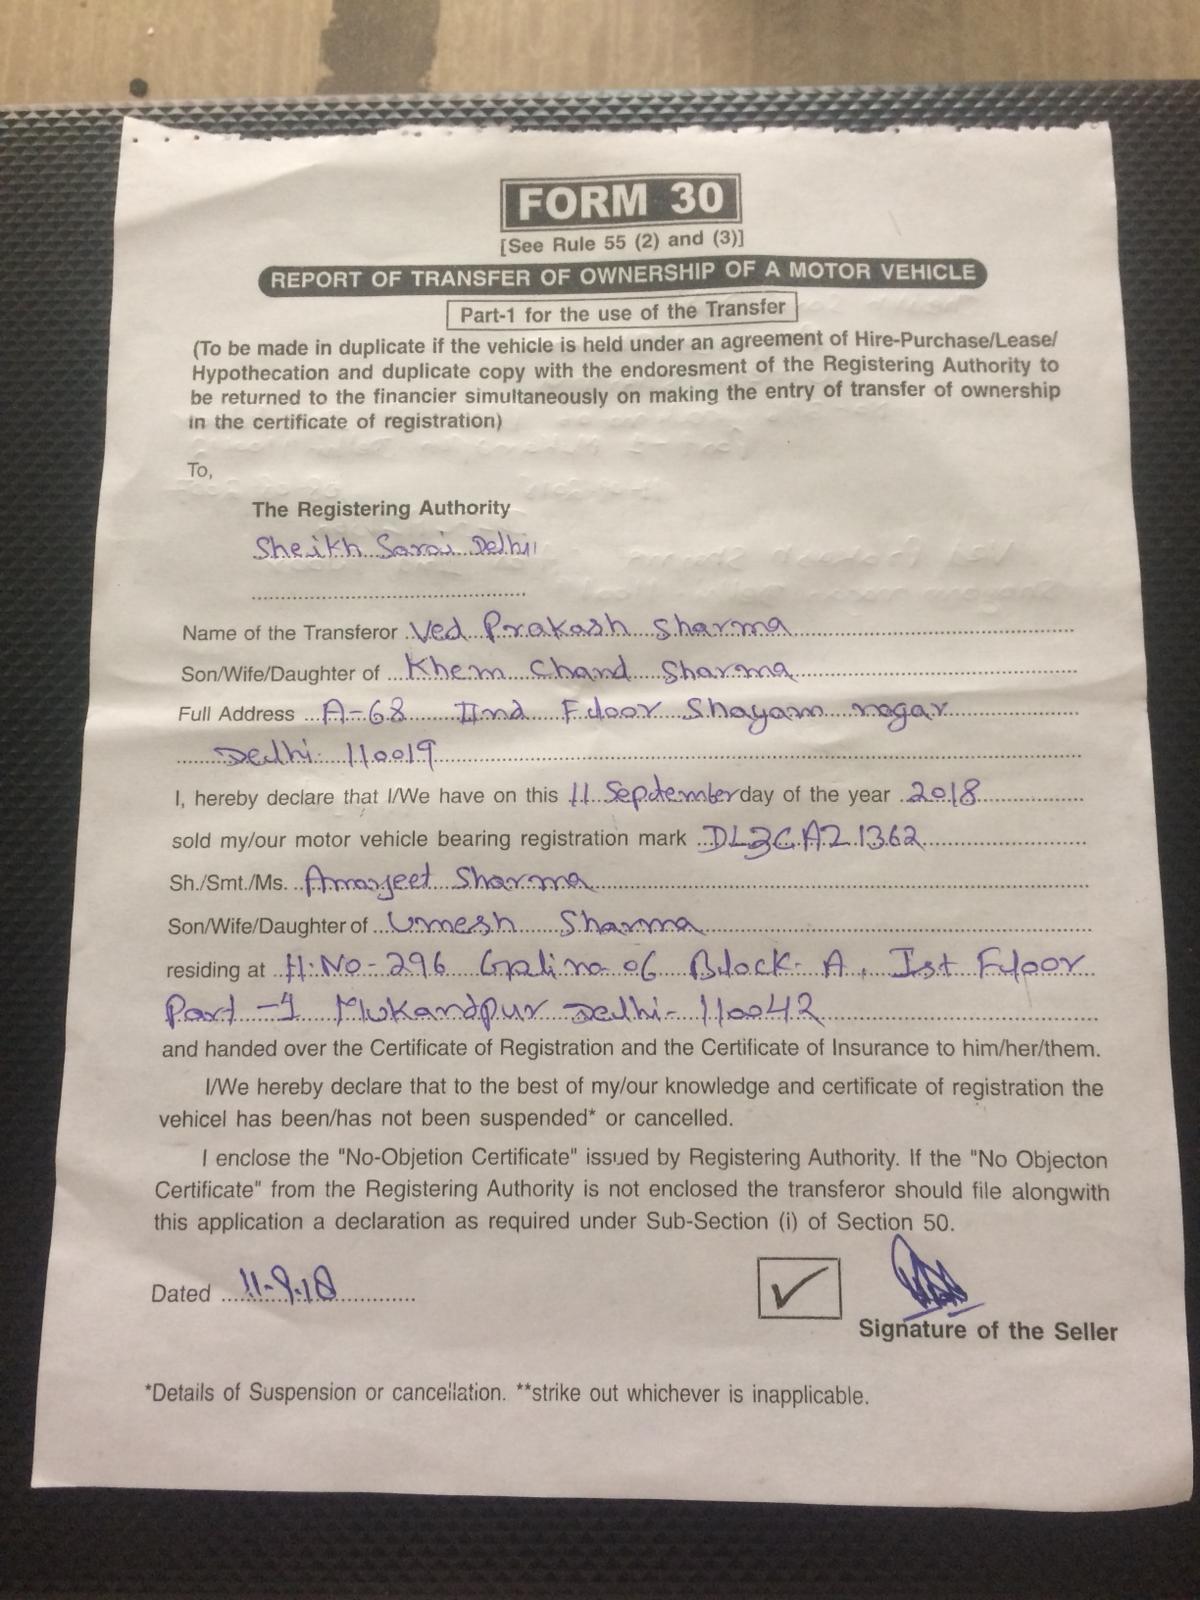 FORM 30
[See Rule 55 (2) and (3)]
REPORT OF TRANSFER OF OWNERSHIP OF A MOTOR VEHICLE
Part-1 for the use of the Transfer
(To be made in duplicate if the vehicle is held under an agreement of Hire-Purchase/Lease/
Hypothecation and duplicate copy with the endoresment of the Registering Authority to
be returned to the financier simultaneously on making the entry of transfer of ownership
in the certificate of registration)
To,
The Registering Authority
Sheikh Sarai Delhi
Name of the Transferor Ved Prakash Sharma
Son/Wife/Daughter of Khem Chand Sharma
Full Address A-68 IInd Floor Shayam nagar
Delhi 110019
I, hereby declare that I/We have on this 11 September day of the year 2018
sold my/our motor vehicle bearing registration mark DL3CAZ1362
Sh./Smt./Ms. Amarjeet Sharma
Son/Wife/Daughter of Umesh Sharma
residing at H.No-296 Gali no 06 Block-A, Ist Floor
Part-1 Mukandpur Delhi-110042
and handed over the Certificate of Registration and the Certificate of Insurance to him/her/them.
I/We hereby declare that to the best of my/our knowledge and certificate of registration the
vehicel has been/has not been suspended* or cancelled.
I enclose the "No-Objetion Certificate" issued by Registering Authority. If the "No Objecton
Certificate" from the Registering Authority is not enclosed the transferor should file alongwith
this application a declaration as required under Sub-Section (i) of Section 50.
Dated 11-9-18
Signature of the Seller
*Details of Suspension or cancellation. **strike out whichever is inapplicable.